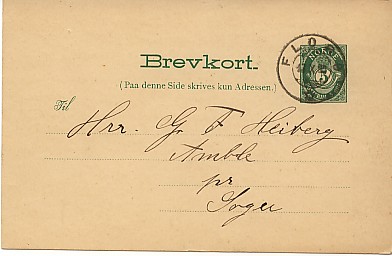 Brevkort.
FLORØ
NORGE
5
(Paa denne Side skrives kun Adressen.)
Til
Hrr. G F Heiberg
Amble
pr